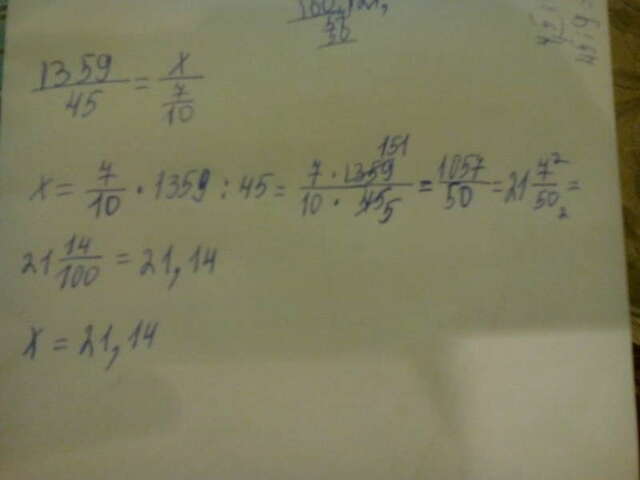 1359/45 = x/(7/10)
x = 7/10 · 1359 : 45 = (7 · 1359 151)/(10 · 45 5) = 1057/50 = 21 7 2/50 2 =
21 14/100 = 21,14
x = 21,14